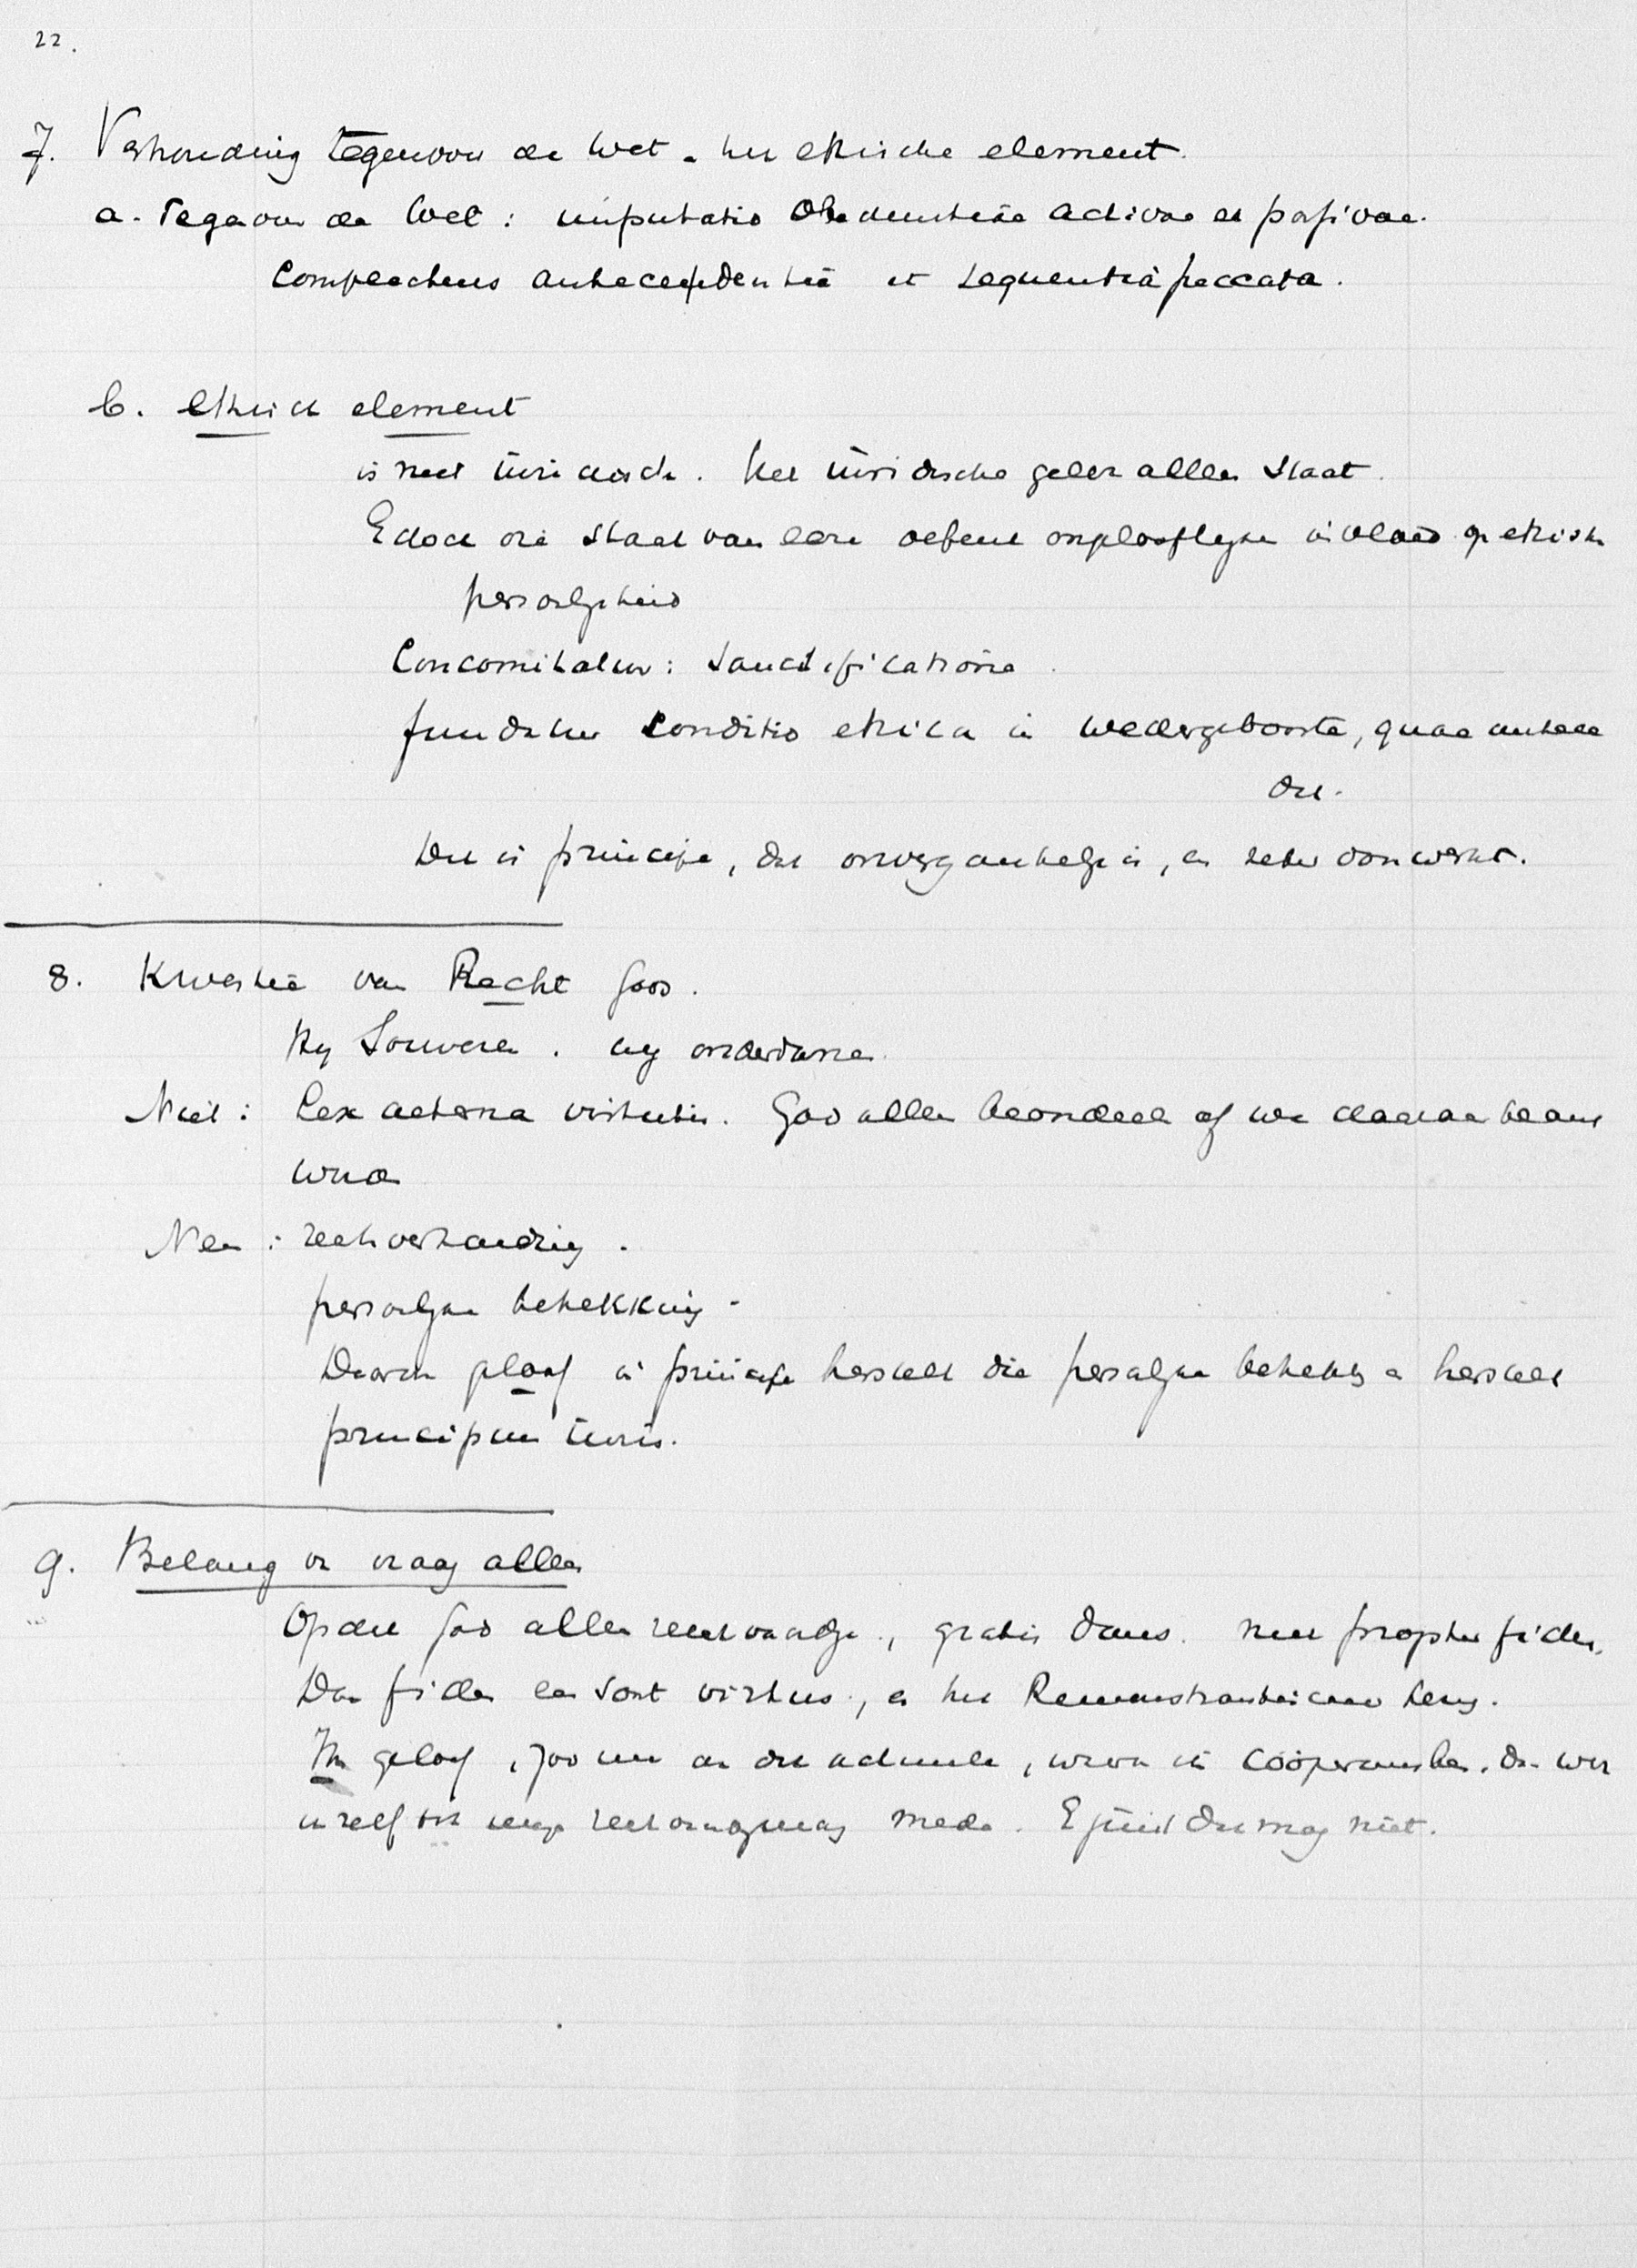 22.
7. Verhouding tegenover de Wet. het ethische element.
a. Tegenover de Wet: imputatio Obedientiae activae et passivae.
Complectens antecedentia et sequentia peccata.
b. ethisch element
is niet iuridisch. Het iuridische geldt alleen Staat.
Edoch die Staat van eere oefent onophooflijke invloed op ethische
persoonlijkheid
Concomitatur: Sanctificatione.
conditio ethica in wedergeboorte, quae antece
dit.
Dit is principe, dat onvergankelijk is, en later doorwerkt.
8. Kwestie van Recht Gods.
Hij Souverein. wij onderdanen.
Niet: Lex aeterna virtutis. God alleen beoordeelt of we daaraan beant
woorden
Neen: rechtsverhouding.
persoonlijke betrekking.
Daarom geloof in principe herstelt die persoonlijke betrekking en herstelt
principium iuris.
9. Belang der vraag alleen
Opdat God alleen rechtvaardige, gratis dans. niet propter fidem.
Dan fides een soort virtus, en het Remonstrantisme terug.
Uw geloof, zoo men dit admitteert, werd in cooperantie. Dan werkt
uzelf tot uwe rechtvaardigmaking mede. E juist dit mag niet.